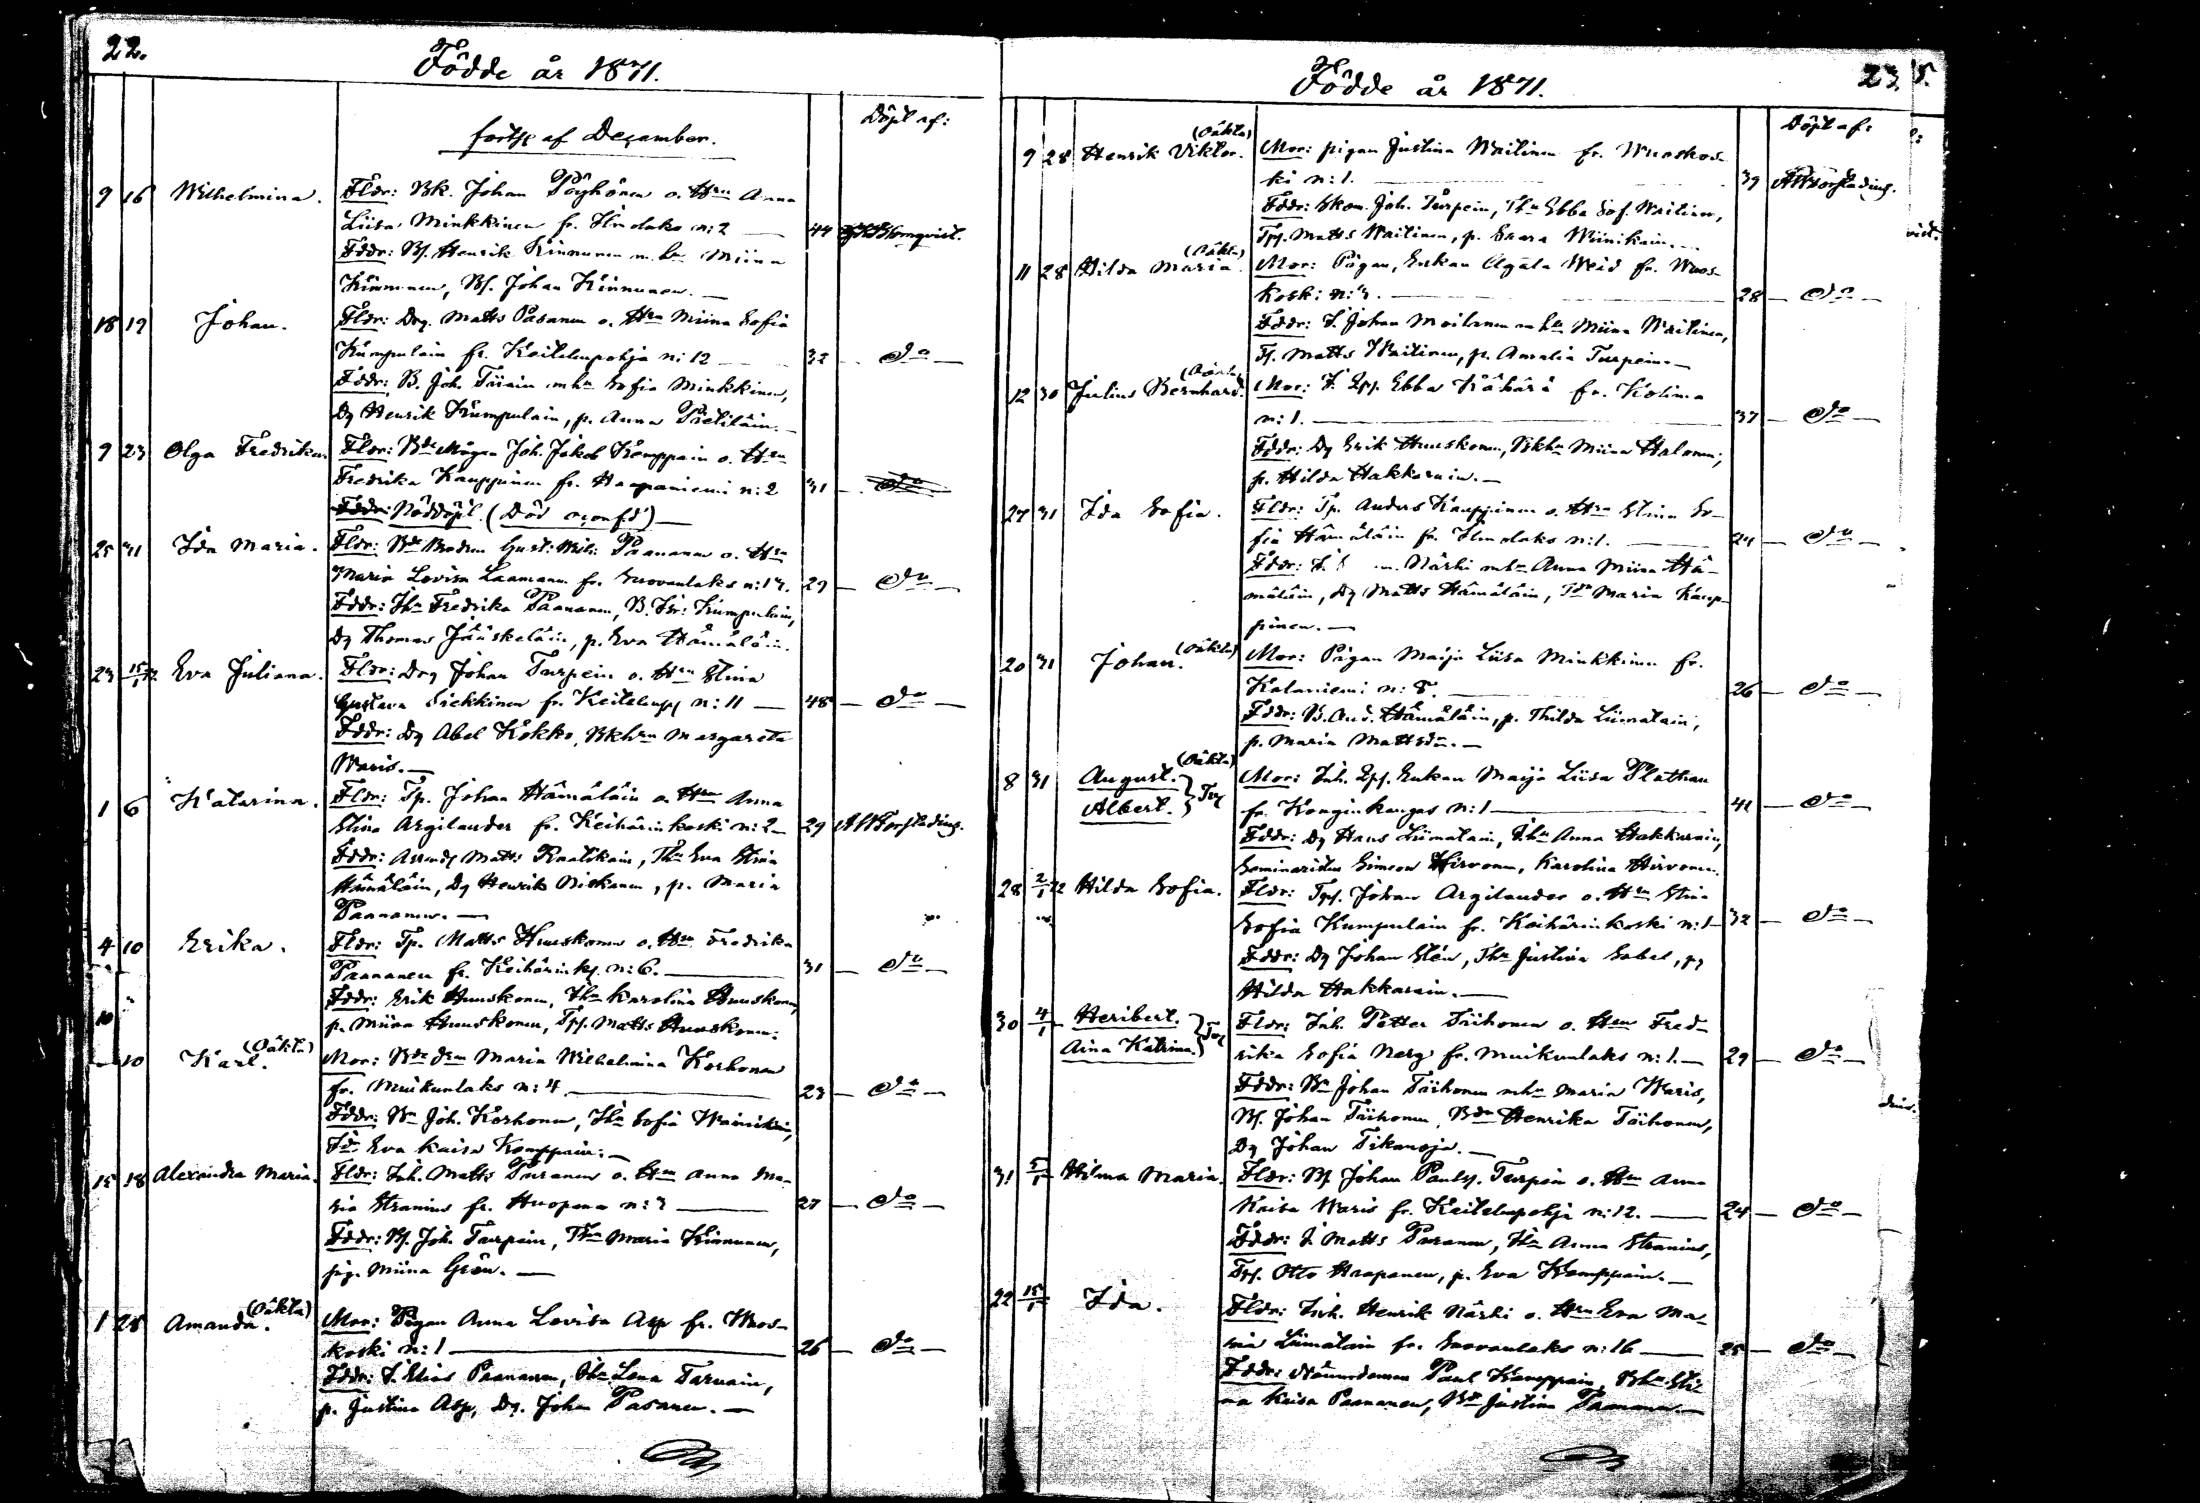 22.
Födde år 1871.
Döpt af:
forts. af December.
9 16 Wilhelmina. Fldr: Bk. Johan Pöyhönen o. Hru Anna
Liisa Minkkinen fr. Ilmolaks n:2 — 44
Fddr: Bs. Henrik Kinnunen m. hu Miina
Kinnunen, Bs. Johan Kinnunen. —
18 19 Johan. Fldr: Drg. Matts Pasanen o. Hru Miina Sofia
Kumpulain fr. Keitelepohja n:12 — 32 — do —
Fddr: B. Joh. Töiäin mhu Sofia Minkkinen,
Dg Henrik Kumpulain, p. Anna Pietiläin. —
9 23 Olga Fredrika. Fldr: Bde Mågen Joh. Jakob Kemppain o. Hru
Fredrika Kauppinen fr. Haapaniemi n:2 31 — do —
Fddr: Nöddöpt. (Död) —
25 31 Ida Maria. Fldr: Bde Brodren Gust: Wilh: Paananen o. Hru
Maria Lovisa Laamanen fr. Suovanlaks n:13. 29 — do —
Fddr: Ihu Fredrika Paananen, B. Isr: Kumpulain,
Dg Thomas Jääskeläin, p. Eva Hämäläin.
23 15/1 72 Eva Juliana. Fldr: Drg Johan Turpein o. Hru Stina
Gustava Siekkinen fr. Keitelepj n:11 — 48 — do —
Fddr: Dg Abel Kokko, Bkhru Margareta
Waris. —
1 6 Katarina. Fldr: Tp. Johan Hämäläin o. Hru Anna
Stina Argilander fr. Keihärinkoski n:2 — 29
Fddr: Arrendr Matts Raatikain, Thu Eva Stina
Hämäläin, Dg Henrik Niskanen, p. Maria
Paananen. —
4 10 Erika. Fldr: Tp. Matts Huuskonen o. Hru Fredrika
Paananen fr. Keihärinkj. n:6. — 31 — do —
Fddr: Erik Huuskonen, Ihu Karolina Huuskonen,
p. Miina Huuskonen, Tps. Matts Huuskonen.
10 10 Karl. (Oäkta) Mor: Bde dren Maria Wilhelmina Korhonen
fr. Muikunlaks n:4. — 23 — do —
Fddr: Bn Joh. Korhonen, Ihu Sofia Wainikain,
Idr Eva Kaisa Kemppain. —
15 18 Alexandra Maria. Fldr: Inh. Matts Pasanen o. Hru Anna Ma-
ria Stranius fr. Huopana n:3 — 27 — do —
Fddr: Bs. Joh. Turpein, Thu Maria Kinnunen,
pig. Miina Grön. —
1 28 Amanda. (Oäkta) Mor: Pigan Anna Lovisa Asp fr. Wuos-
koski n:1 — 26 — do —
Fddr: I. Elias Paananen, Ihu Lena Tarvain,
p. Justina Asp, Dg. Johan Pasanen. —
23.
Födde år 1871.
Döpt af:
9 28 Henrik Viktor. (Oäkta) Mor: pigan Justina Waitinen fr. Wuoskos-
ki n:1. — 39
Fddr: Skom. Joh. Turpein, Thu Ebba Sof. Waitinen,
Tps. Matts Waitinen, p. Saara Wiinikain. —
11 28 Hilda Maria. (Oäkta) Mor: Pigan, Enkan Agata Weid fr. Wuos-
koski n:3. — 28 — do —
Fddr: I. Johan Moilanen mhu Miina Waitinen,
Ts. Matts Waitinen, p. Amalia Turpein. —
12 30 Julius Bernhard. (Oäkta) Mor: I. Spj. Ebba Kähärä fr. Kolima
n:1. — 37 — do —
Fddr: Dg Erik Huuskonen, Bkhu Miina Halonen,
p. Hilda Hakkarain. —
27 31 Ida Sofia. Fldr: Tp. Anders Kauppinen o. Hru Stina So-
fia Hämäläin fr. Ilmolaks n:1. — 24 — do —
Fddr: I. Närhi mhu Anna Miina Hä-
mäläin, Dg Matts Hämäläin, Idr Maria Kaup-
pinen. —
20 31 Johan. (Oäkta) Mor: Pigan Maija Liisa Minkkinen fr.
Kalaniemi n:8. — 26 — do —
Fddr: B. And. Hämäläin, p. Thilda Liimatain,
p. Maria Mattsdr. —
8 31 August. (Oäkta) Albert. } Tvg Mor: Inh. Spj. Enkan Maija Liisa Plathan
fr. Konginkangas n:1 — 41 — do —
Fddr: Dg Hans Liimatain, Ihu Anna Hakkarain,
Seminaristen Simeon Hirvonen, Karolina Hirvonen.
28 2/1 72 Hilda Sofia. Fldr: Tps. Johan Argilander o. Hru Stina
Sofia Kumpulain fr. Keihärinkoski n:1 — 32 — do —
Fddr: Dg Johan Stén, Thu Justina Sabel, pg
Hilda Hakkarain. —
30 4/1 Heribert. Aina Katrina. } Tvg Fldr: Inh. Petter Töihonen o. Hru Fred-
rika Sofia Nerg fr. Muikunlaks n:1. — 29 — do —
Fddr: Bn Johan Töihonen mhu Maria Waris,
Bs. Johan Töihonen, Bdr Henrika Töihonen,
Dg Johan Tikanoja. —
31 5/1 Hilma Maria. Fldr: Bs Johan Paulss. Turpein o. Hru Anna
Kaisa Waris fr. Keitelepohja n:12. — 24 — do —
Fddr: I. Matts Pasanen, Ihu Anna Stranius,
Tps. Otto Haapanen, p. Eva Kemppain. —
22 15/1 Ida. Fldr: Inh. Henrik Närhi o. Hru Eva Ma-
ria Liimatain fr. Suovanlaks n:16 — 25 — do —
Fddr: Nämndeman Paul Kemppain, Bhu Sti-
na Kaisa Paananen, Bdr Justina Paananen. —